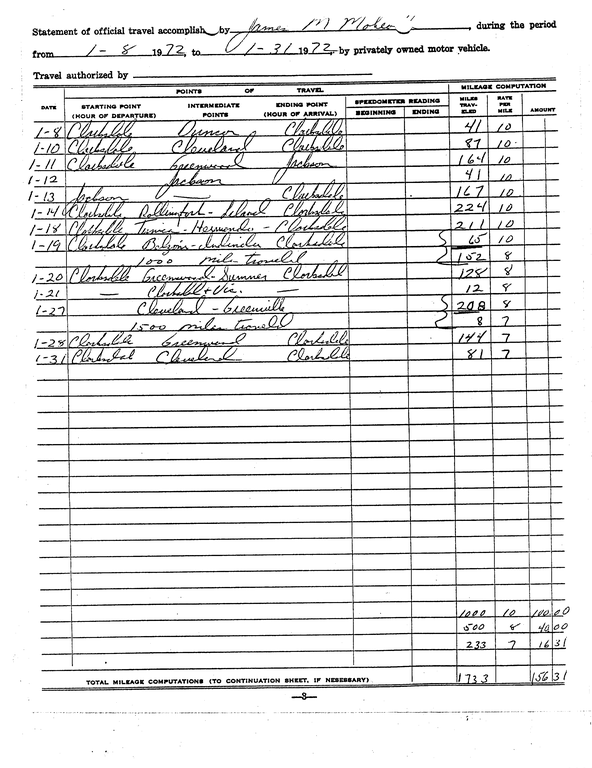 Statement of official travel accomplish by James M, during the period
from 1-8 1972, to 1-31 1972, by privately owned motor vehicle.
Travel authorized by
POINTS OF TRAVEL MILEAGE COMPUTATION
DATE STARTING POINT (HOUR OF DEPARTURE) INTERMEDIATE POINTS ENDING POINT (HOUR OF ARRIVAL) SPEEDOMETER READING BEGINNING ENDING MILES TRAV-ELED RATE PER MILE AMOUNT
1-8 Clarksdale Duncan Clarksdale 41 10
1-10 Clarksdale Cleveland Clarksdale 87 10
1-11 Clarksdale Greenwood Jackson 164 10
1-12 Jackson 41 10
1-13 Jackson — Clarksdale 167 10
1-14 Clarksdale Rolling Fork - Leland Clarksdale 224 10
1-18 Clarksdale Tunica - Hernando - Clarksdale 211 10
1-19 Clarksdale Belzoni - Indianola Clarksdale 65 10
1000 miles traveled 152 8
1-20 Clarksdale Greenwood - Sumner Clarksdale 128 8
1-21 — Clarksdale + Vic. — 12 8
1-27 Cleveland - Greenville 208 8
1500 miles traveled 8 7
1-28 Clarksdale Greenwood Clarksdale 144 7
1-31 Clarksdale Cleveland Clarksdale 81 7
1000 10 100.00
500 8 40 00
233 7 16 31
TOTAL MILEAGE COMPUTATIONS (TO CONTINUATION SHEET, IF NESESSARY) 1733 156 31
—3—